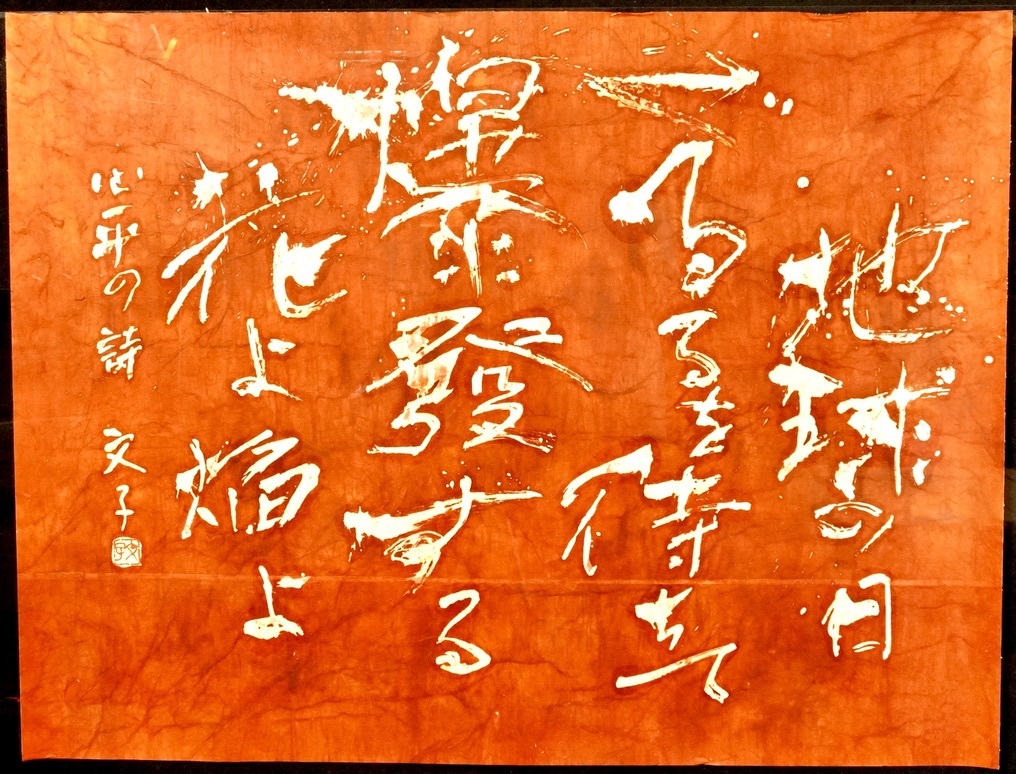 地球の日
るるを待ちて
爆發する
花よ焔よ
心平の詩 文子